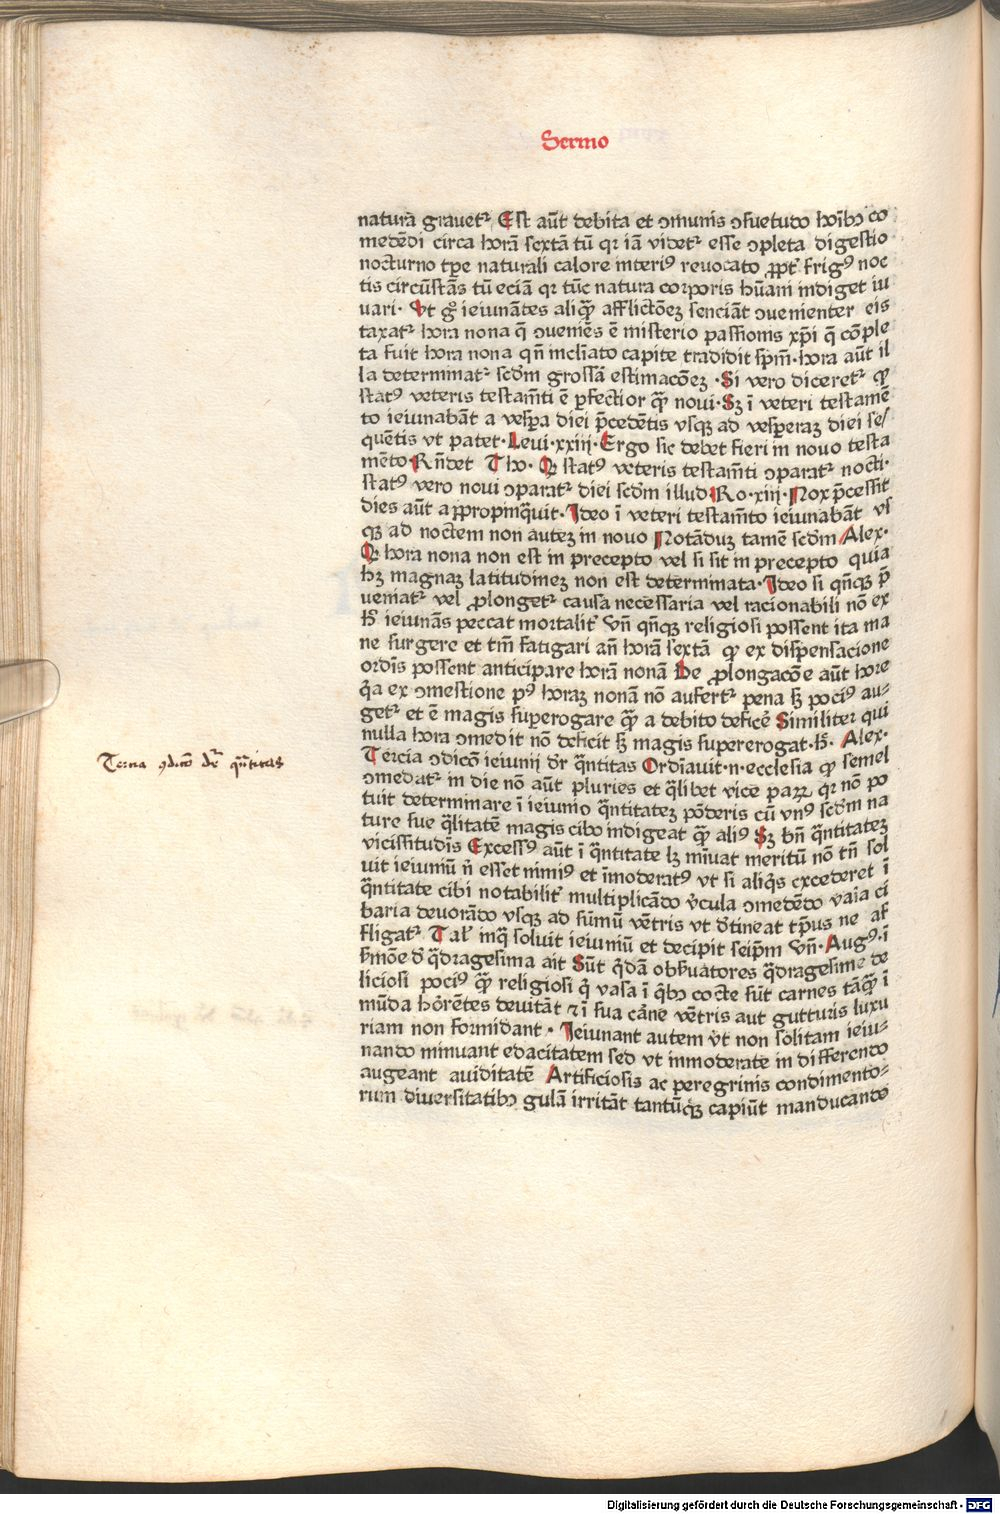 Sermo
naturā grauetʳ. Est aūt debita et ꝯmunis ꝯsuetudo hoībꝫ co
medēdi circa horā sextā tū qꝛ iā videtʳ esse ꝯpleta digestio
nocturno tꝑe naturali calore interiꝰ reuocato ꝓpt̄ frigꝰ noc
tis circūstās tū eciā qꝛ tūc natura corporis hūani indiget iu
uari· Vt gͦ ieiunātes aliqͣꝫ afflictōeꝫ senciāt ꝯuenienter eis
taxatʳ hora nona q̄ ꝯueniēs ē misterio passionis xp̄i q̄ cōple
ta fuit hora nona qn̄ incliato capite tradidit sp̄m·hora aūt il
la determinatʳ scd̄m grossā estimacōeꝫ ·Si vero diceretʳ ꝙ
statꝰ veteris testam̄ti ē ꝑfectior qͣꝫ noui·Sꝫ ī veteri testamē
to ieiunabāt a vesꝑa diei p̄cedētis vsqꝫ ad vesꝑeraꝫ diei se/
quētis vt patet·Leui·xxiij·Ergo sic debet fieri in nouo testa
mēto·Rn̄det Tho·Qꝙ statꝰ veteris testam̄ti ꝯparatʳ nocti·
statꝰ vero noui ꝯparatʳ diei scd̄m illud Ro·xiij·Nox p̄cessit
dies aūt aꝓpropinqͣuit·Ideo ī veteri testam̄to ieiunabāt vs
qꝫ ad noctem non auteꝫ in nouo Notāduꝫ tamē scd̄m Alex·
Qꝙ hora nona non est in precepto vel si sit in precepto quia
hꝫ magnaꝫ latitudineꝫ non est determinata·Ideo si qn̄cqꝫ p̄
ueniatʳ vel ꝓlongetʳ causa necessaria vel racionabili nō ex
h̄ ieiunās peccat mortalit̄ Vn̄ qn̄cqꝫ religiosi possent ita ma
ne surgere et tm̄ fatigari an̄ horā sextā ꝙ ex dispensacione
ordīs possent anticipare horā nonā De ꝓlongacōe aūt hore
qͣa ex ꝯmestione pꝰ horaꝫ nonā nō aufertʳ pena sꝫ pociꝰ au-
getʳ et ē magis suꝑerogare qͣꝫ a debito deficē Similiter qui
nulla hora ꝯmedit nō deficit sꝫ magis supererogat·h̄· Alex·
Tercia ꝯdicō ieiunij dʳ qͣntitas Ordīauit·n·ecclesia ꝙ semel
ꝯmedatʳ in die nō aūt pluries et qͣlibet vice paꝝ qꝛ nō po
tuit determinare ī ieiunio qͣntitateꝫ pōderis cū vnꝰ scd̄m na
ture sue qͣlitatē magis cibo indigeat qͣꝫ aliꝰ Sꝫ bn̄ qͣntitateꝫ
vicissitudīs Excessꝰ aūt ī qͣntitate lꝫ minuat meritū nō tn̄ sol
uit ieiuniū n̄ esset nimiꝰ et īmoderatꝰ vt si aliqͥs excederet ī
qͣntitate cibi notabilit̄ multiplicādo v̄cula ꝯmedēdo vaīa ci
baria deuorādo vsqꝫ ad sūmū vētris vt d̄tineat tp̄us ne af
fligatʳ Tal̄ inqͣ soluit ieiuniū et decipit seip̄m Vn̄·Augꝰ·ī
s̄mōe d̄ qͣdragesima ait Sūt qͥdā obs̄uatores qͣdragesime de
liciosi pociꝰ qͣꝫ religiosi qͥ vasa ī qͥbꝫ cocte sūt carnes tāqͣꝫ ī
mūda hōrētes deuitāt ⁊ ī sua cāne vētris aut gutturis luxu
riam non formidant · Ieiunant autem v̄t non solitam ieiu-
nando minuant edacitatem sed vt immoderate in differendo
augeant auiditatē Artificiosis ac peregrinis condimento-
rum diuersitatibꝫ gulā irritāt tantūqꝫ capiūt manducando
Tercia ꝯdicō dʳ qͣntitas
Digitalisierung gefördert durch die Deutsche Forschungsgemeinschaft - DFG